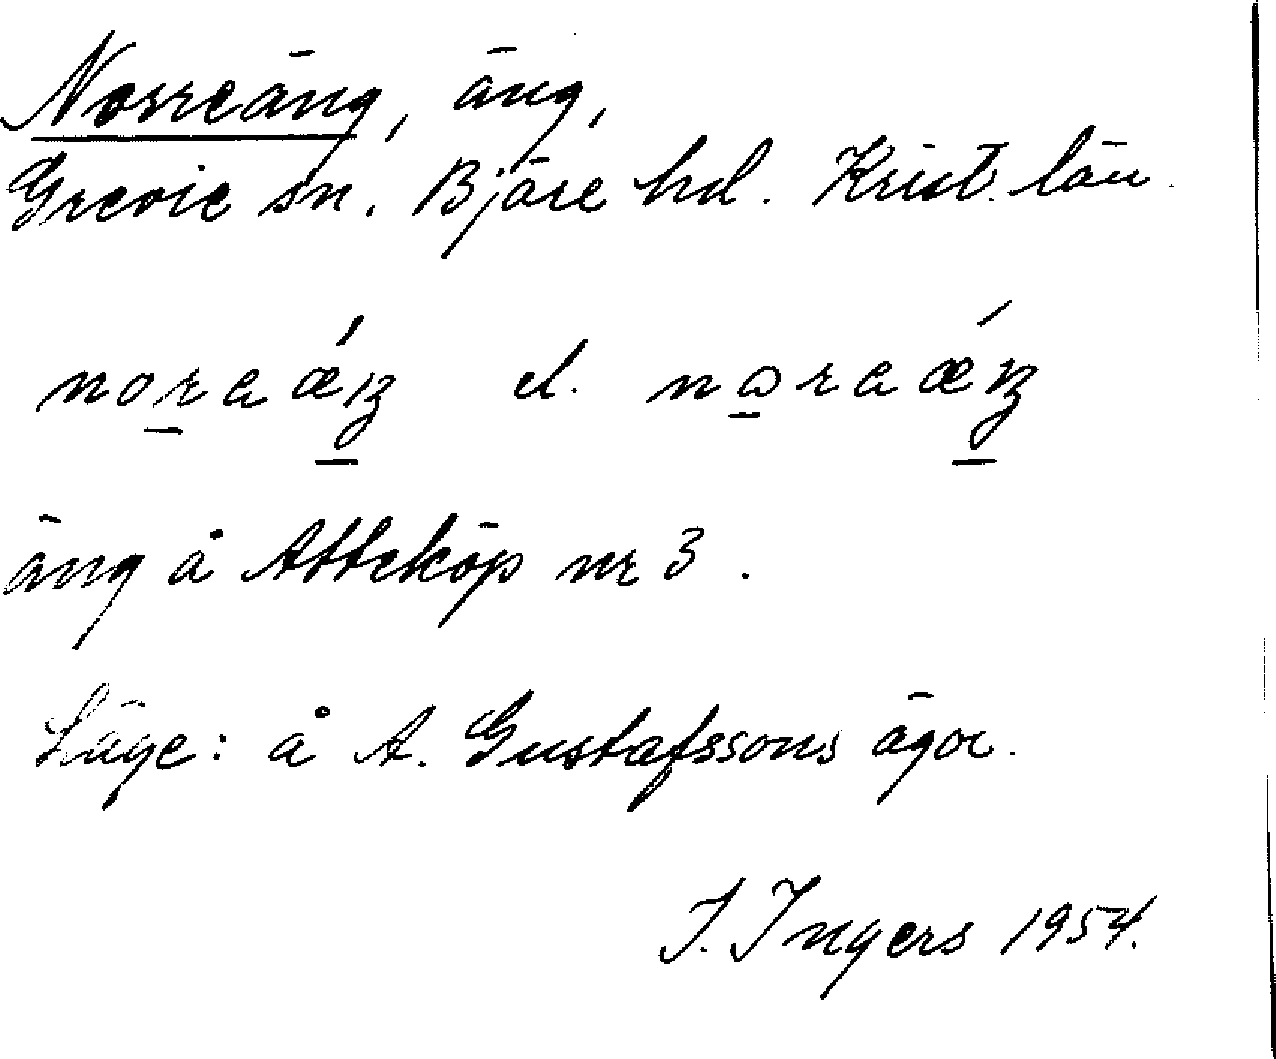 Norreäng, äng,
Grevie sn. Bjäre hd. Krist. län.
noraǽŋ el. noraǽŋ
äng å Atteköp nr 3.
Läge: å A. Gustafssons ägor.
I. Ingers 1954.